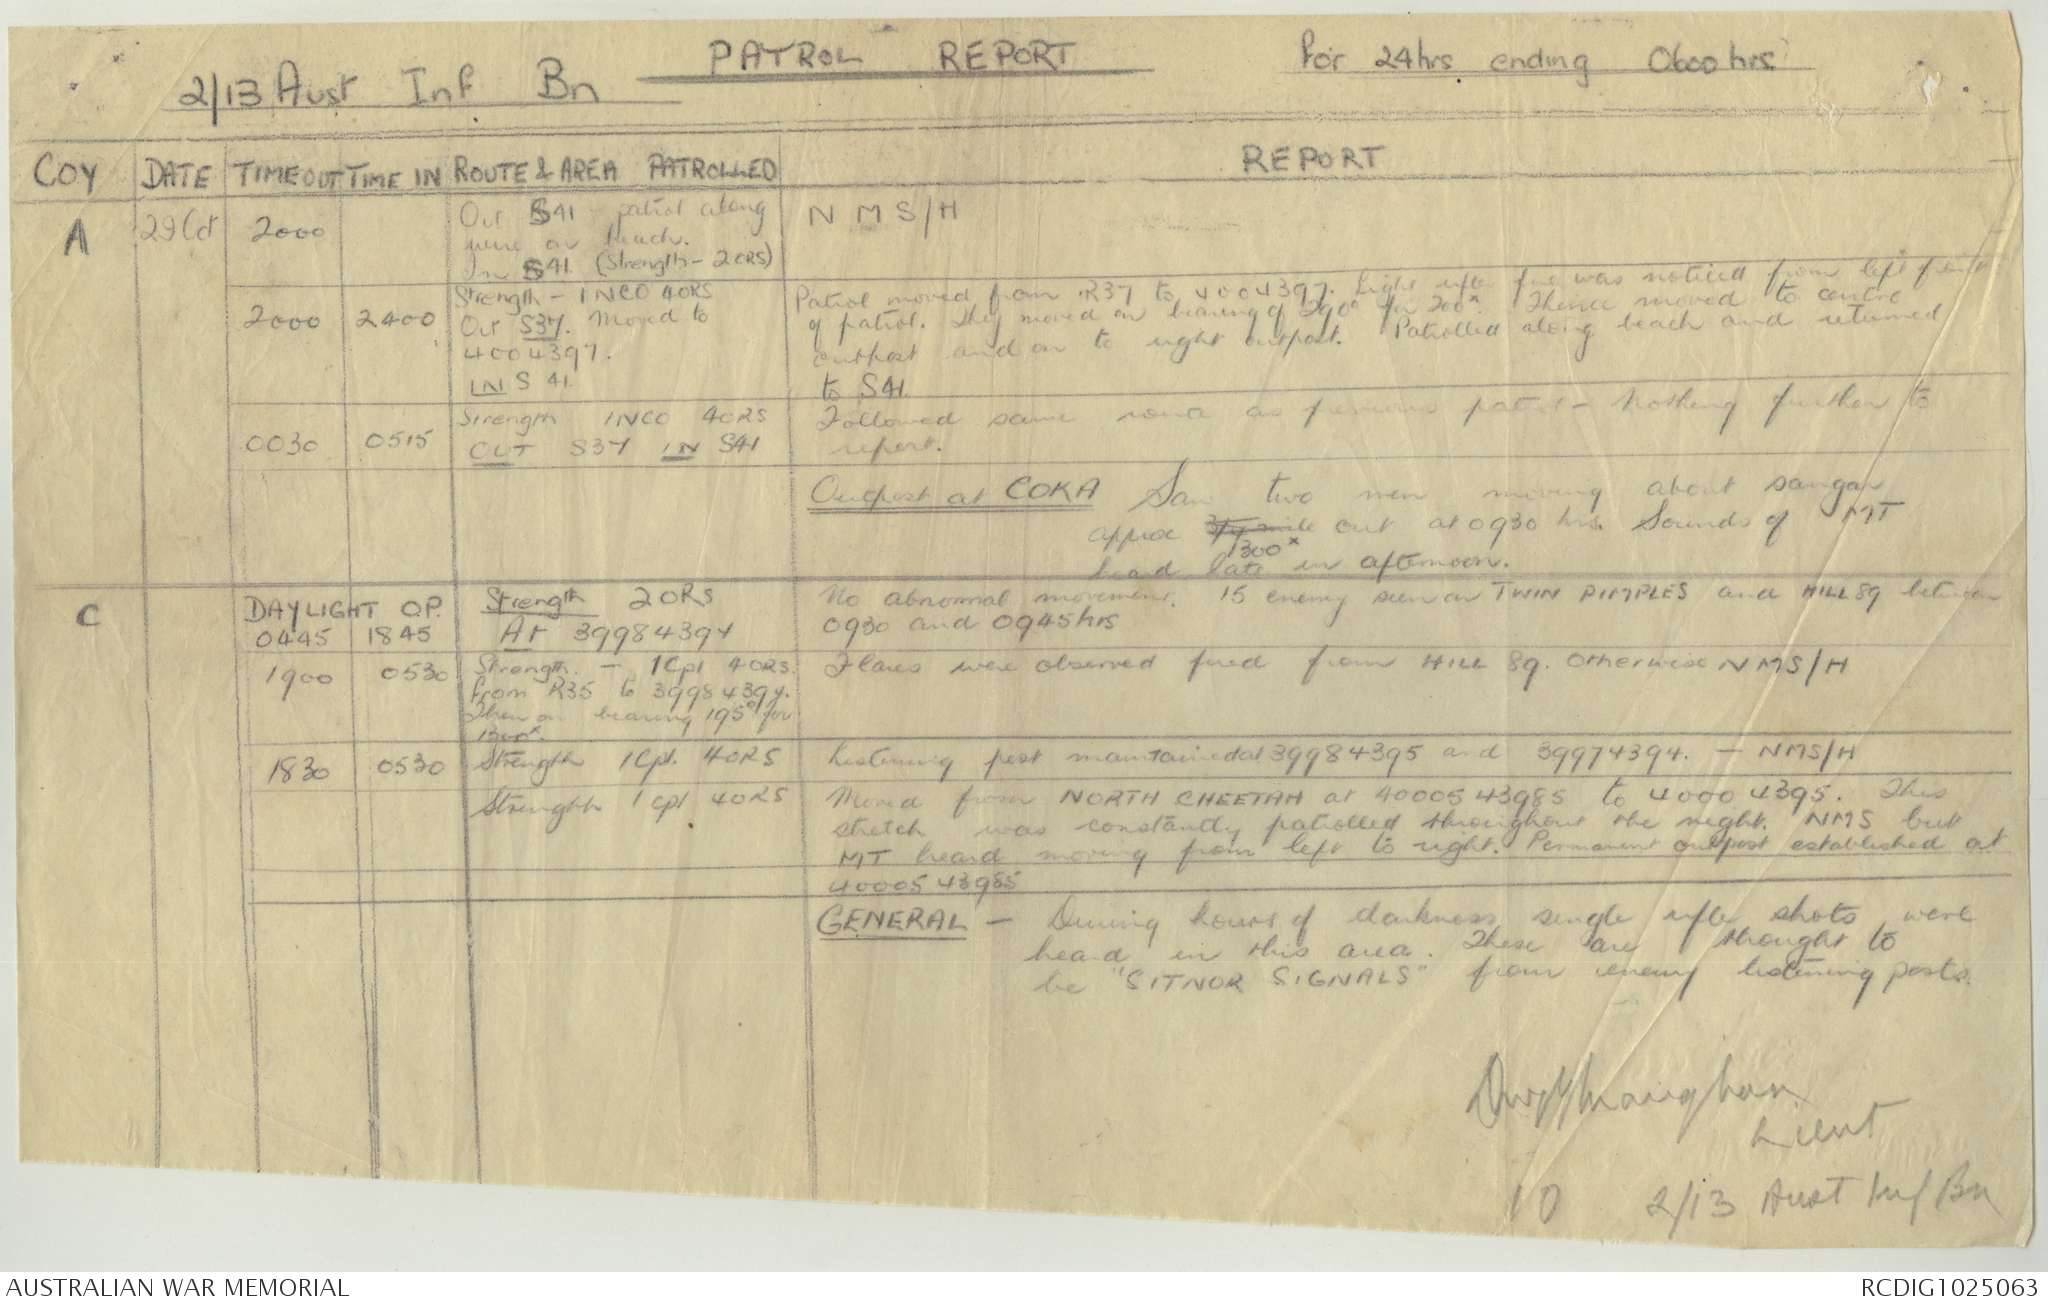 PATROL REPORT
For 24hrs ending 0600hrs
2/13 Aust Inf Bn
COY DATE TIME OUT TIME IN ROUTE & AREA PATROLLED REPORT
A 2000
Out S41 - patrol along
wire on beach.
In S41. (Strength - 2 ORS)
N M S/H
2000 2400
Strength - 1NCO 4ORS
Out S37. Moved to
4004397.
IN S 41.
Patrol moved from R37 to 4004397. Light rifle fire was noticed from left front
of patrol. They moved on bearing of 290° for 200x. Thence moved to centre
outpost and on to right outpost. Patrolled along beach and returned
to S41.
0030 0515
Strength 1NCO 4ORS
OUT S37 IN S41
Followed same route as previous patrol - Nothing further to
report.
Outpost at COKA Saw two men moving about sangar
approx 3/4 mile out at 0930 hrs. Sounds of MT
1300x
heard late in afternoon.
C
DAYLIGHT O.P.
0445 1845
Strength 2ORS
At 39984394
No abnormal movement. 15 enemy seen on TWIN PIMPLES and HILL 89 between
0930 and 0945hrs
1900 0530
Strength. - 1Cpl 4ORS.
From R35 to 39984394.
Then on bearing 195° for
1300x.
Flares were observed fired from HILL 89. Otherwise NMS/H
1830 0530
Strength 1Cpl. 4ORS
Listening post maintained at 39984395 and 39974394. - NMS/H
Strength 1 cpl 4ORS
Moved from NORTH CHEETAH at 40005 43985 to 4000 4395. This
stretch was constantly patrolled throughout the night. NMS but
MT heard moving from left to right. Permanent outpost established at
40005 43985
GENERAL - During hours of darkness single rifle shots were
heard in this area. These are thought to
be "SITNOR SIGNALS" from enemy listening posts.
Lieut
IO 2/13 Aust Inf Bn
AUSTRALIAN WAR MEMORIAL
RCDIG1025063